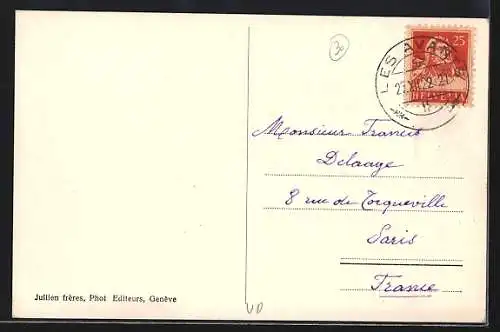 30
25
LES AVANTS
HELVETIA
Monsieur Francis
Delaage
8 rue de Tocqueville
Paris
France
Jullien frères, Phot Editeurs, Genève
VD